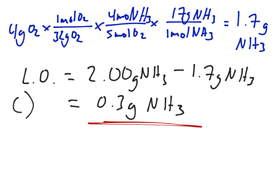 4gO₂ × 1molO₂/32gO₂ × 4molNH₃/5molO₂ × 17gNH₃/1molNH₃ = 1.7g
NH₃
L.O. = 2.00gNH₃ - 1.7gNH₃
C) = 0.3g NH₃